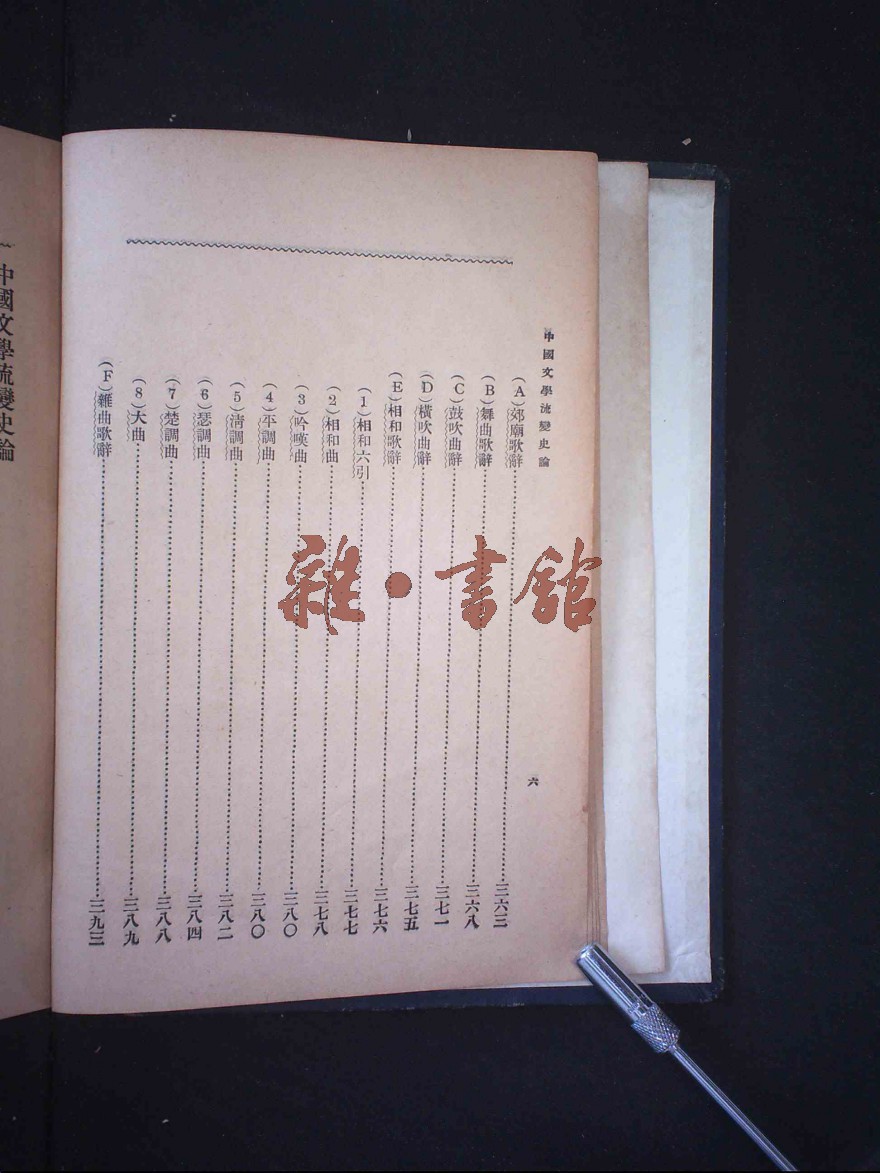 中國文學流變史論
六
(A)郊廟歌辭……三六三
(B)舞曲歌辭……三六八
(C)鼓吹曲辭……三七一
(D)橫吹曲辭……三七五
(E)相和歌辭……三七六
(1)相和六引……三七七
(2)相和曲……三七八
(3)吟嘆曲……三八〇
(4)平調曲……三八〇
(5)清調曲……三八二
(6)瑟調曲……三八四
(7)楚調曲……三八八
(8)大曲……三八九
(F)雜曲歌辭……三九三
中國文學流變史論
雜·書館